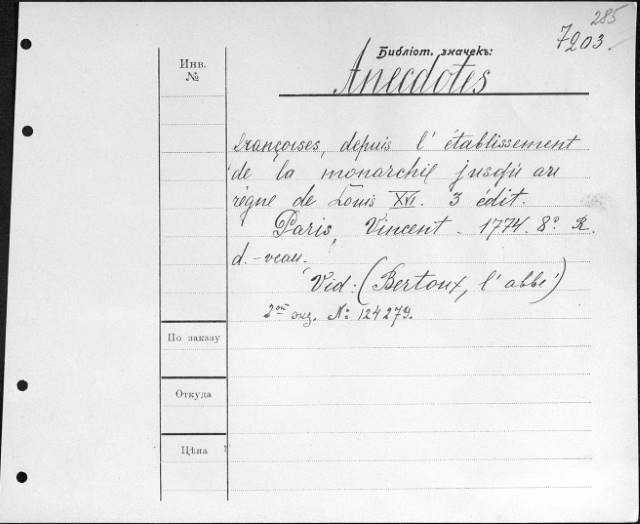 285
7203.
Библіот. значекъ:
Инв.
№
Anecdotes
françoises, depuis l'établissement
de la monarchie jusqu'au
règne de Louis XVI. 3 édit.
Paris, Vincent. 1774. 8°. R.
d.-veau.
Vid: (Bertoux, l'abbé)
2ой экз. №: 124279.
По заказу
Откуда
Цѣна